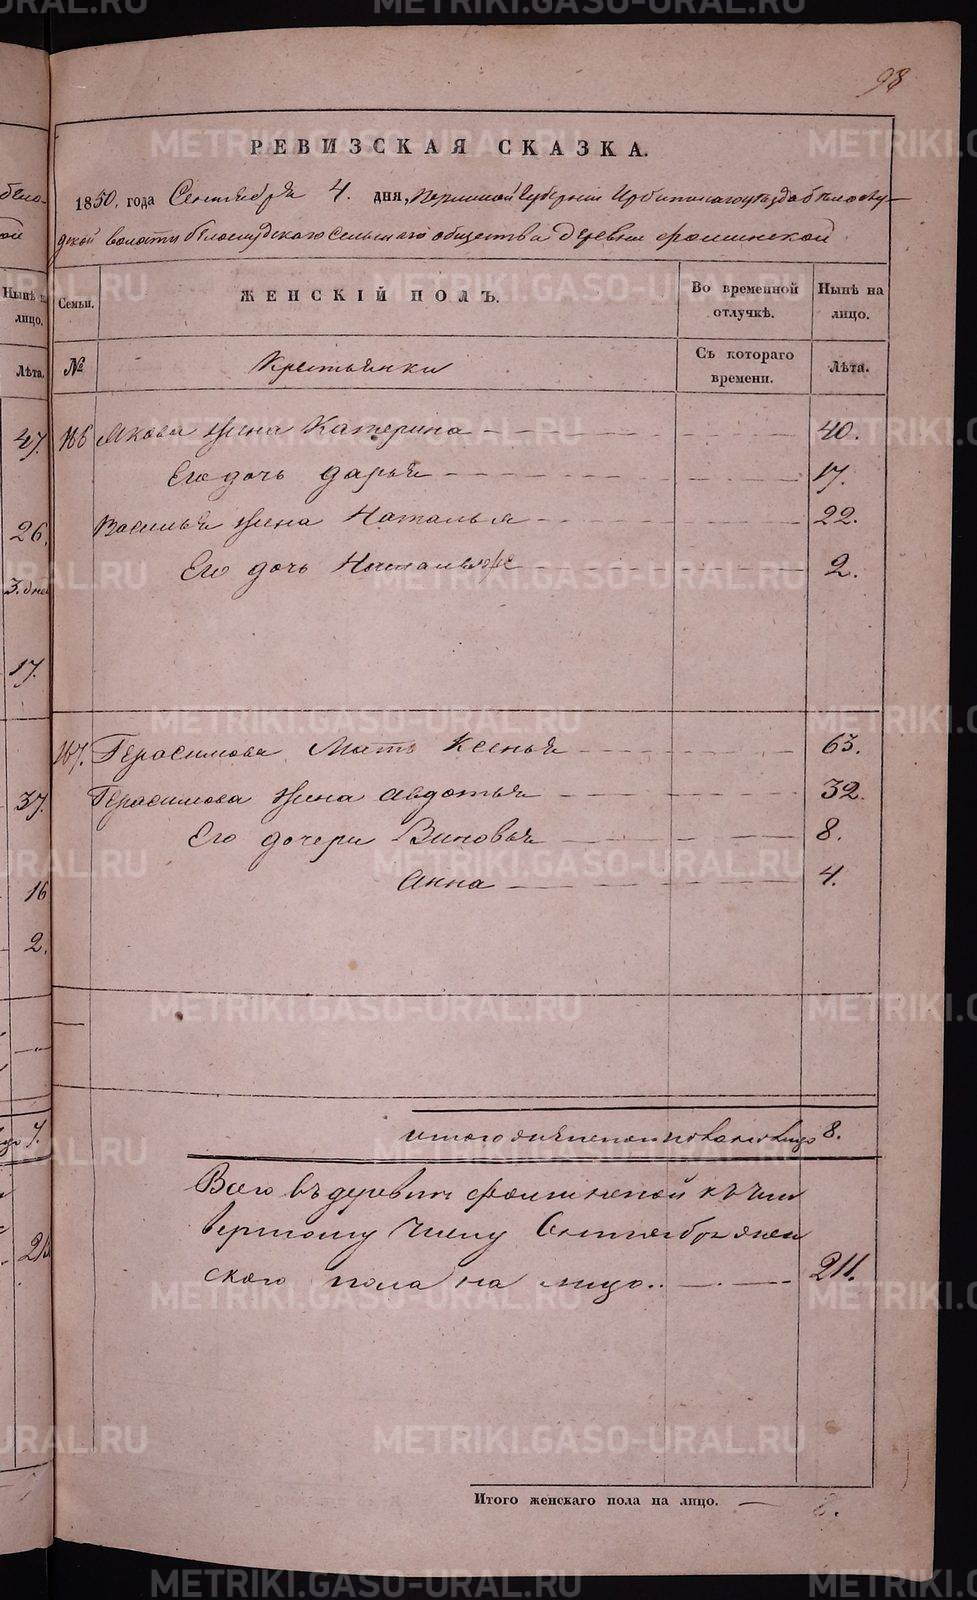 98
РЕВИЗСКАЯ СКАЗКА.
1850. года Сентября 4. дня, Пермской Губернии Ирбитскаго уѣзда Бѣлослу-
дской волости бѣлослудскаго сельскаго общества Деревни Фоминской
Семьи. ЖЕНСКІЙ ПОЛЪ. Во временной отлучкѣ. Нынѣ на лицо.
№ Крестьянки Съ котораго времени. Лѣта.
166 Якова жена Катерина 40.
Его дочь дарья 17.
Василья жена Наталья 22.
Его дочь Наталья же 2.
167. Герасимова Мать Ксенья 63.
Герасимова жена Авдотья 32.
Его дочери Зиновья 8.
Анна 4.
Итого женскаго пола на лицо 8.
Всего въ деревни Фоминской къ чет
вертому числу Сентября жен
скаго пола на лицо. 211.
Итого женскаго пола на лицо. 8.
Нынѣ на
лицо.
Лѣта.
47.
26.
3. дней
17.
37.
16
2.
7.
METRIKI.GASO-URAL.RU